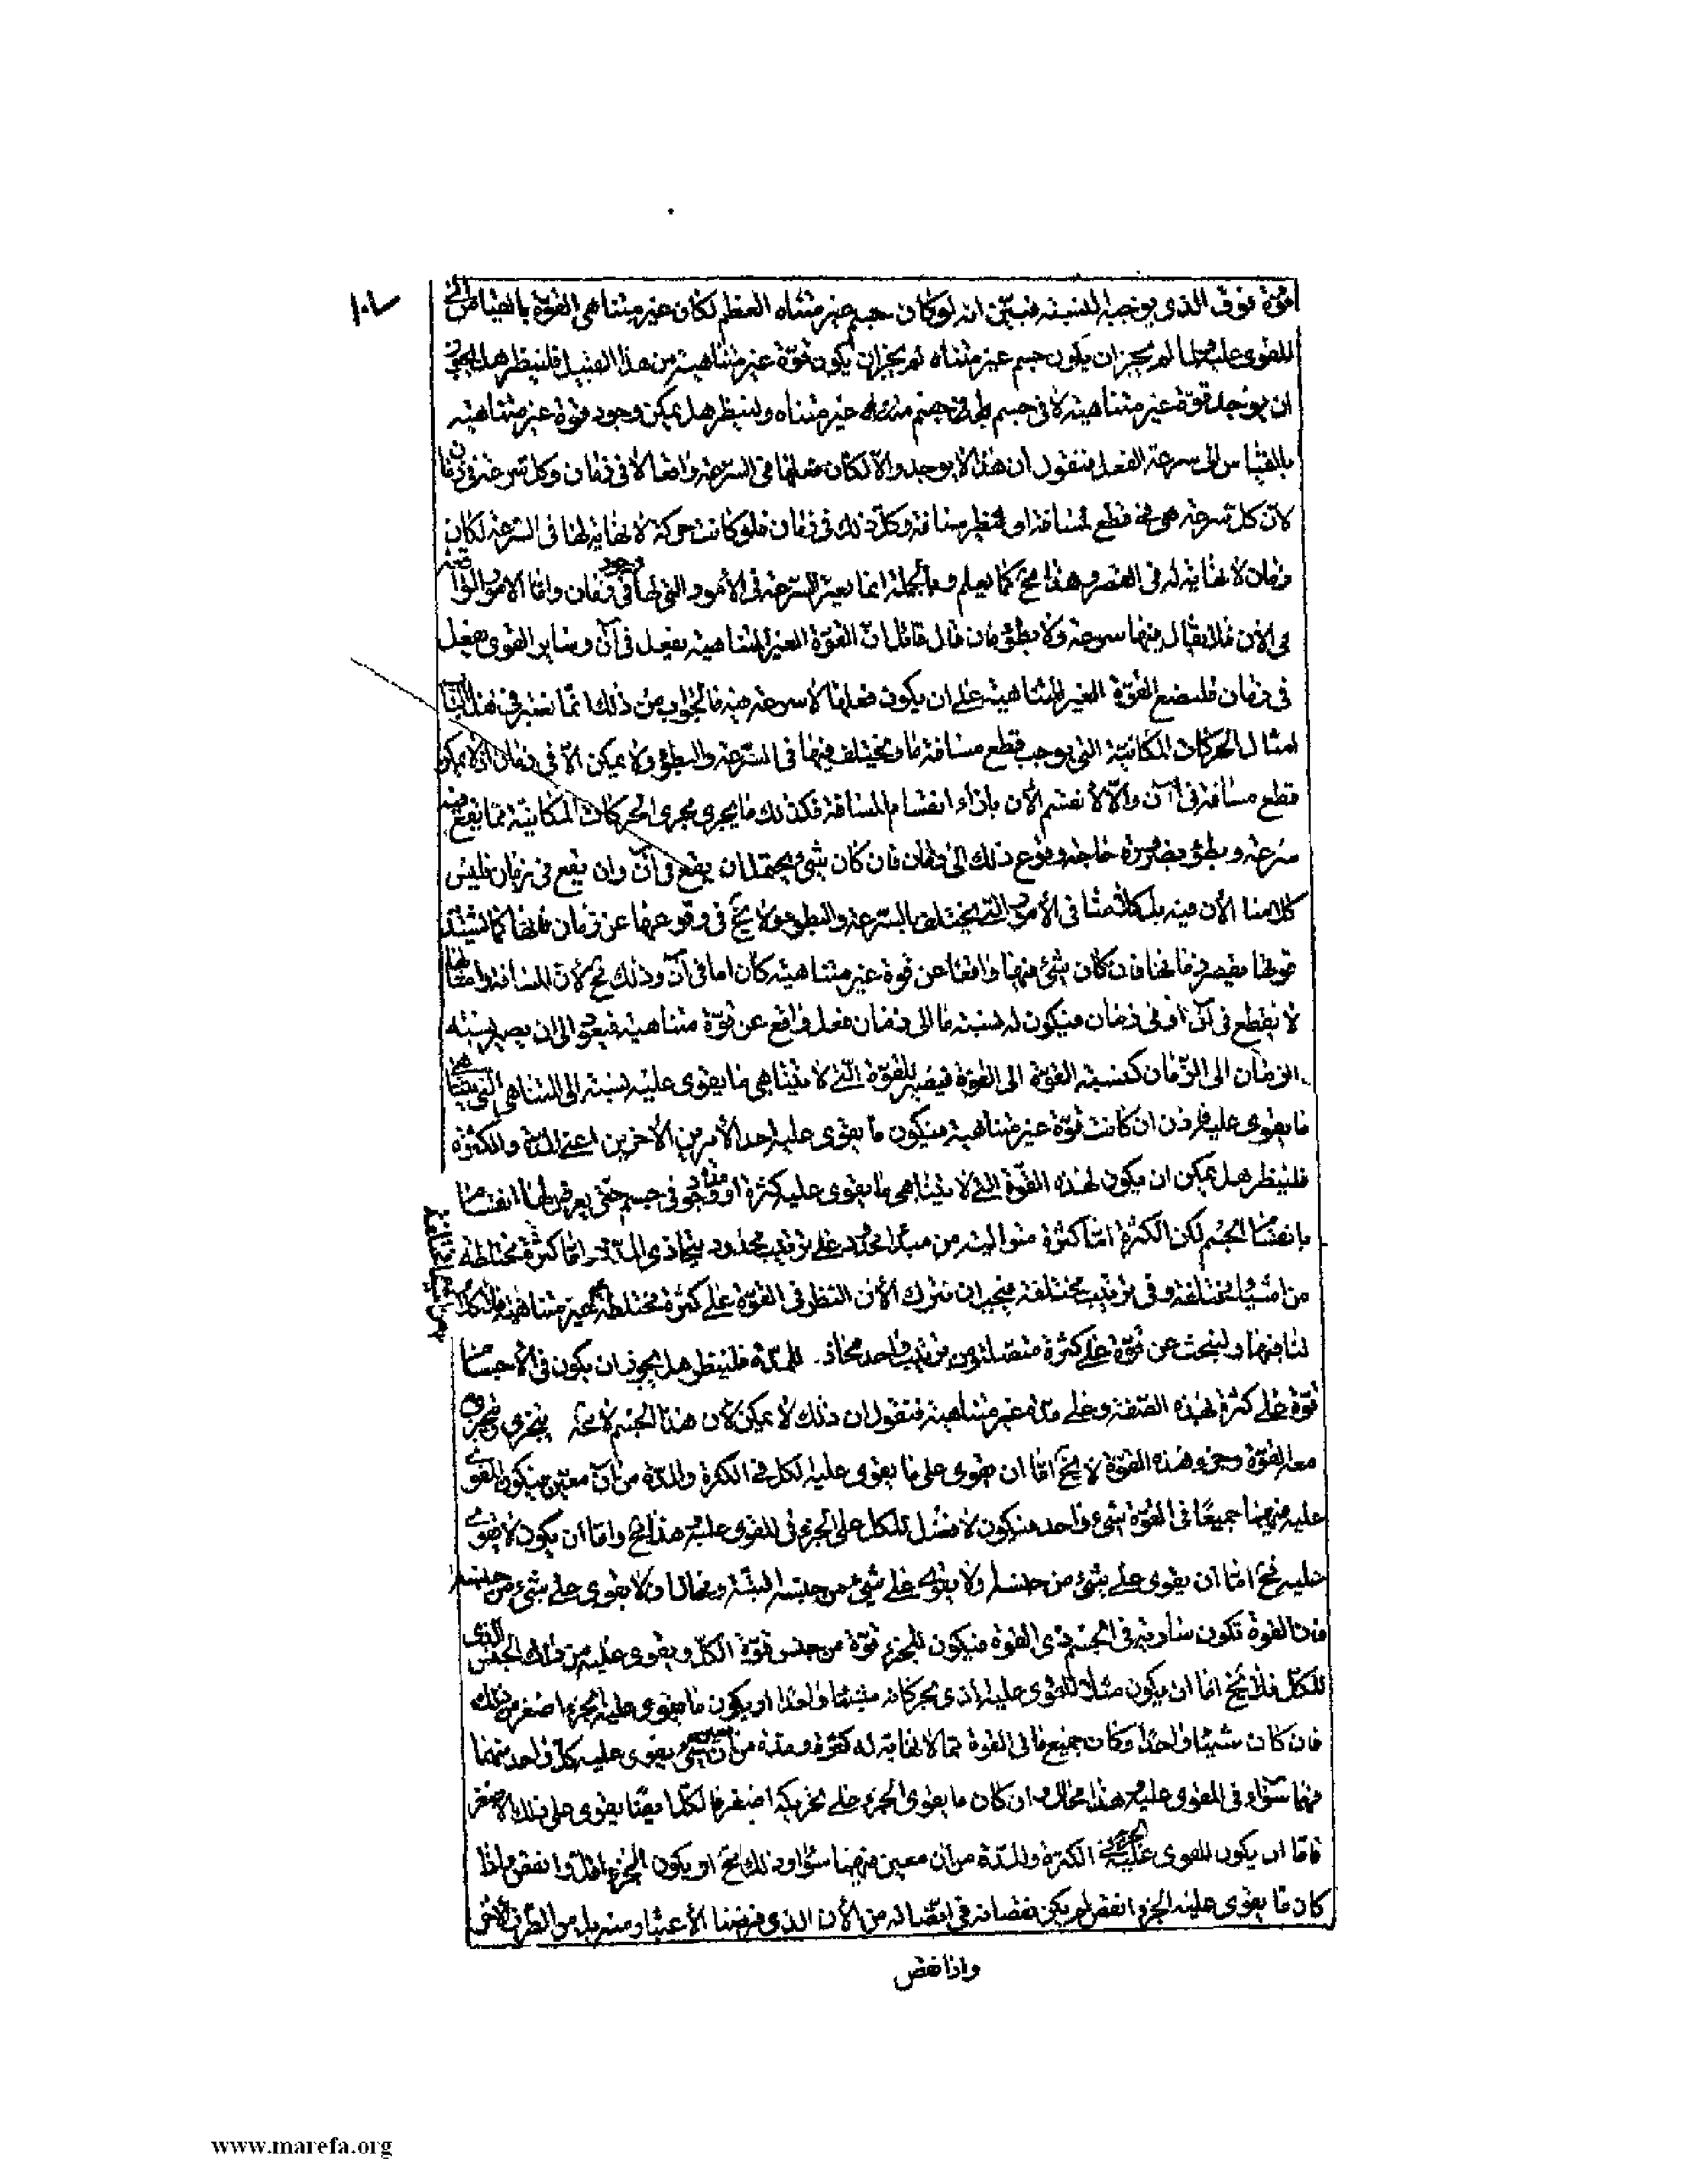 قوة فوق الذي يوجبه النسبة فبيّن انه لو كان جسم غير متناه العظم لكان غير متناهى القوة بالقياس الى
المقوى عليه لم يجز ان يكون جسم غير متناه لم يجز ان يكون قوة غير متناهية من هذا القبيل فلينظر هل يجوز
ان يوجد قوة غير متناهية لا فى جسم غير متناه ولينظر هل يمكن وجود قوة غير متناهية
بالقياس الى سرعة الفعل فنقول ان هذا لا يوجد والا لكان فعلها فى السرعة واقعا لا فى زمان وكل سرعة فى زمان
لان كل سرعة هى فى قطع مسافة او نظير مسافة وكل ذلك فى زمان فلو كانت حركة لا نهاية لها فى السرعة لكان
زمان لا نهاية له فى القصر وهذا مح كما يعلم وبالجملة انما يعتبر السرعة فى الأمور التى لها وجود فى زمان واما الامور الواقعة
فى الان فلا يقال فيها سرعة ولا بطؤ فان قال قائل ان القوة الغير المتناهية يفعل فى آن وساير القوى يفعل
فى زمان فلنضع القوة الغير المتناهية على ان يكون فعلها لا سرعة فيه فالجواب من ذلك انما نعتبر فى هذا
امثال الحركات المكانية التى يوجب قطع مسافة ما ويختلف فيها فى السرعة والبطؤ ولا يمكن الا فى زمان اذ لا يمكن
قطع مسافة فى آن والا لانقسم الآن بازاء انقسام المسافة فكذلك ما يجرى مجرى الحركات المكانية مما يقع فيه
سرعة وبطؤ وقوع ذلك الى زمان فان كان شئ يحتمل ان يقع فى آن وان يقع فى زمان فليس
كلامنا الآن فيه بل كلامنا فى الأمور التى يختلف بالسرعة والبطؤ ولا يخ فى وقوعها عن زمان فانها كما يشتد
قوتها يقصر زمانها فان كان شئ منها واقعا عن قوة غير متناهية كان اما فى آن وذلك مح لأن المسافة وامثالها
لا يقطع فى آن او فى زمان فيكون له نسبة ما الى زمان فعل واقع عن قوة متناهية فيعود الى ان يصير نسبة
الزمان الى الزمان كنسبة القوة الى القوة فيصير للقوة التى لا يتناهى ما يقوى عليه نسبة الى المتناهى التى يتناهى
ما يقوى عليه فاذن ان كانت قوة غير متناهية فيكون ما يقوى عليه احد الأمرين الآخرين اعنى المدة والكثرة
فلينظر هل يمكن ان يكون لهذه القوة التى لا يتناهى ما يقوى عليه كثرة او مدة وجود فى جسم حتى يعرض لها انقسام
بانقسام الجسم لكن الكثرة اما كثرة متوالية من مبدأ محدود على ترتيب محدود يحاذى المدة واما كثرة مختلطة
من اشياء مختلفة وفى ترتيب مختلفة فيجب ان نترك الآن النظر فى القوة على كثرة مختلطة غير متناهية
لنا فيها ولنبحث عن قوة على كثرة متصلة من ترتيب واحد محاذ للمدة فلينظر هل يجوز ان يكون فى الأجسام
قوة على كثرة بهذه الصفة وعلى مدة غير متناهية فنقول ان ذلك لا يمكن لان هذا الجسم لا محة يتجزى ويتجزى
معه القوة وجزء هذه القوة لا يخ اما ان يقوى على ما يقوى عليه الكل فى الكثرة والمدة من آن معين فيكون المقوى
عليه فيهما جميعًا فى القوة شئ واحد فيكون لا فضل للكل على الجزء فى المقوى عليه هذا مح واما ان يكون لا يقوى
عليه فح اما ان يقوى على شئ من جنسه ولا يقوى على شئ من جنسه البتة ومحال ان لا يقوى على شئ من جنسه
فان القوة تكون سارية فى الجسم ذى القوة فيكون للجزء قوة من جنس قوة الكل ويقوى عليه من ذلك الجنس الذى
للكل فلا يخ اما ان يكون مثل المقوى عليه اذ يحركان شيئا واحدا او يكون ما يقوى عليه الجزء اصغر من ذلك
فان كان شيئا واحدًا وكان جميع ما فى القوة مما لا نهاية له كثرة ومدة من آن معين يقوى عليه كل واحد منهما
فهما سواء فى المقوى عليه هذا محال وان كان ما يقوى الجزء على تحريكه اصغر فالكل ايضًا يقوى على ذلك الاصغر
فاما ان يكون المقوى عليه الكثرة والمدة من آن معين فيهما سواء وذلك مح او يكون الجزء اقل وانقص واذا
كان ما يقوى عليه الجزء انقص لم يكن نقصانه فى اتصاله من الآن الذى فرضنا الاعتبار منه بل من الطرف الآخر
واذا نقص
www.marefa.org